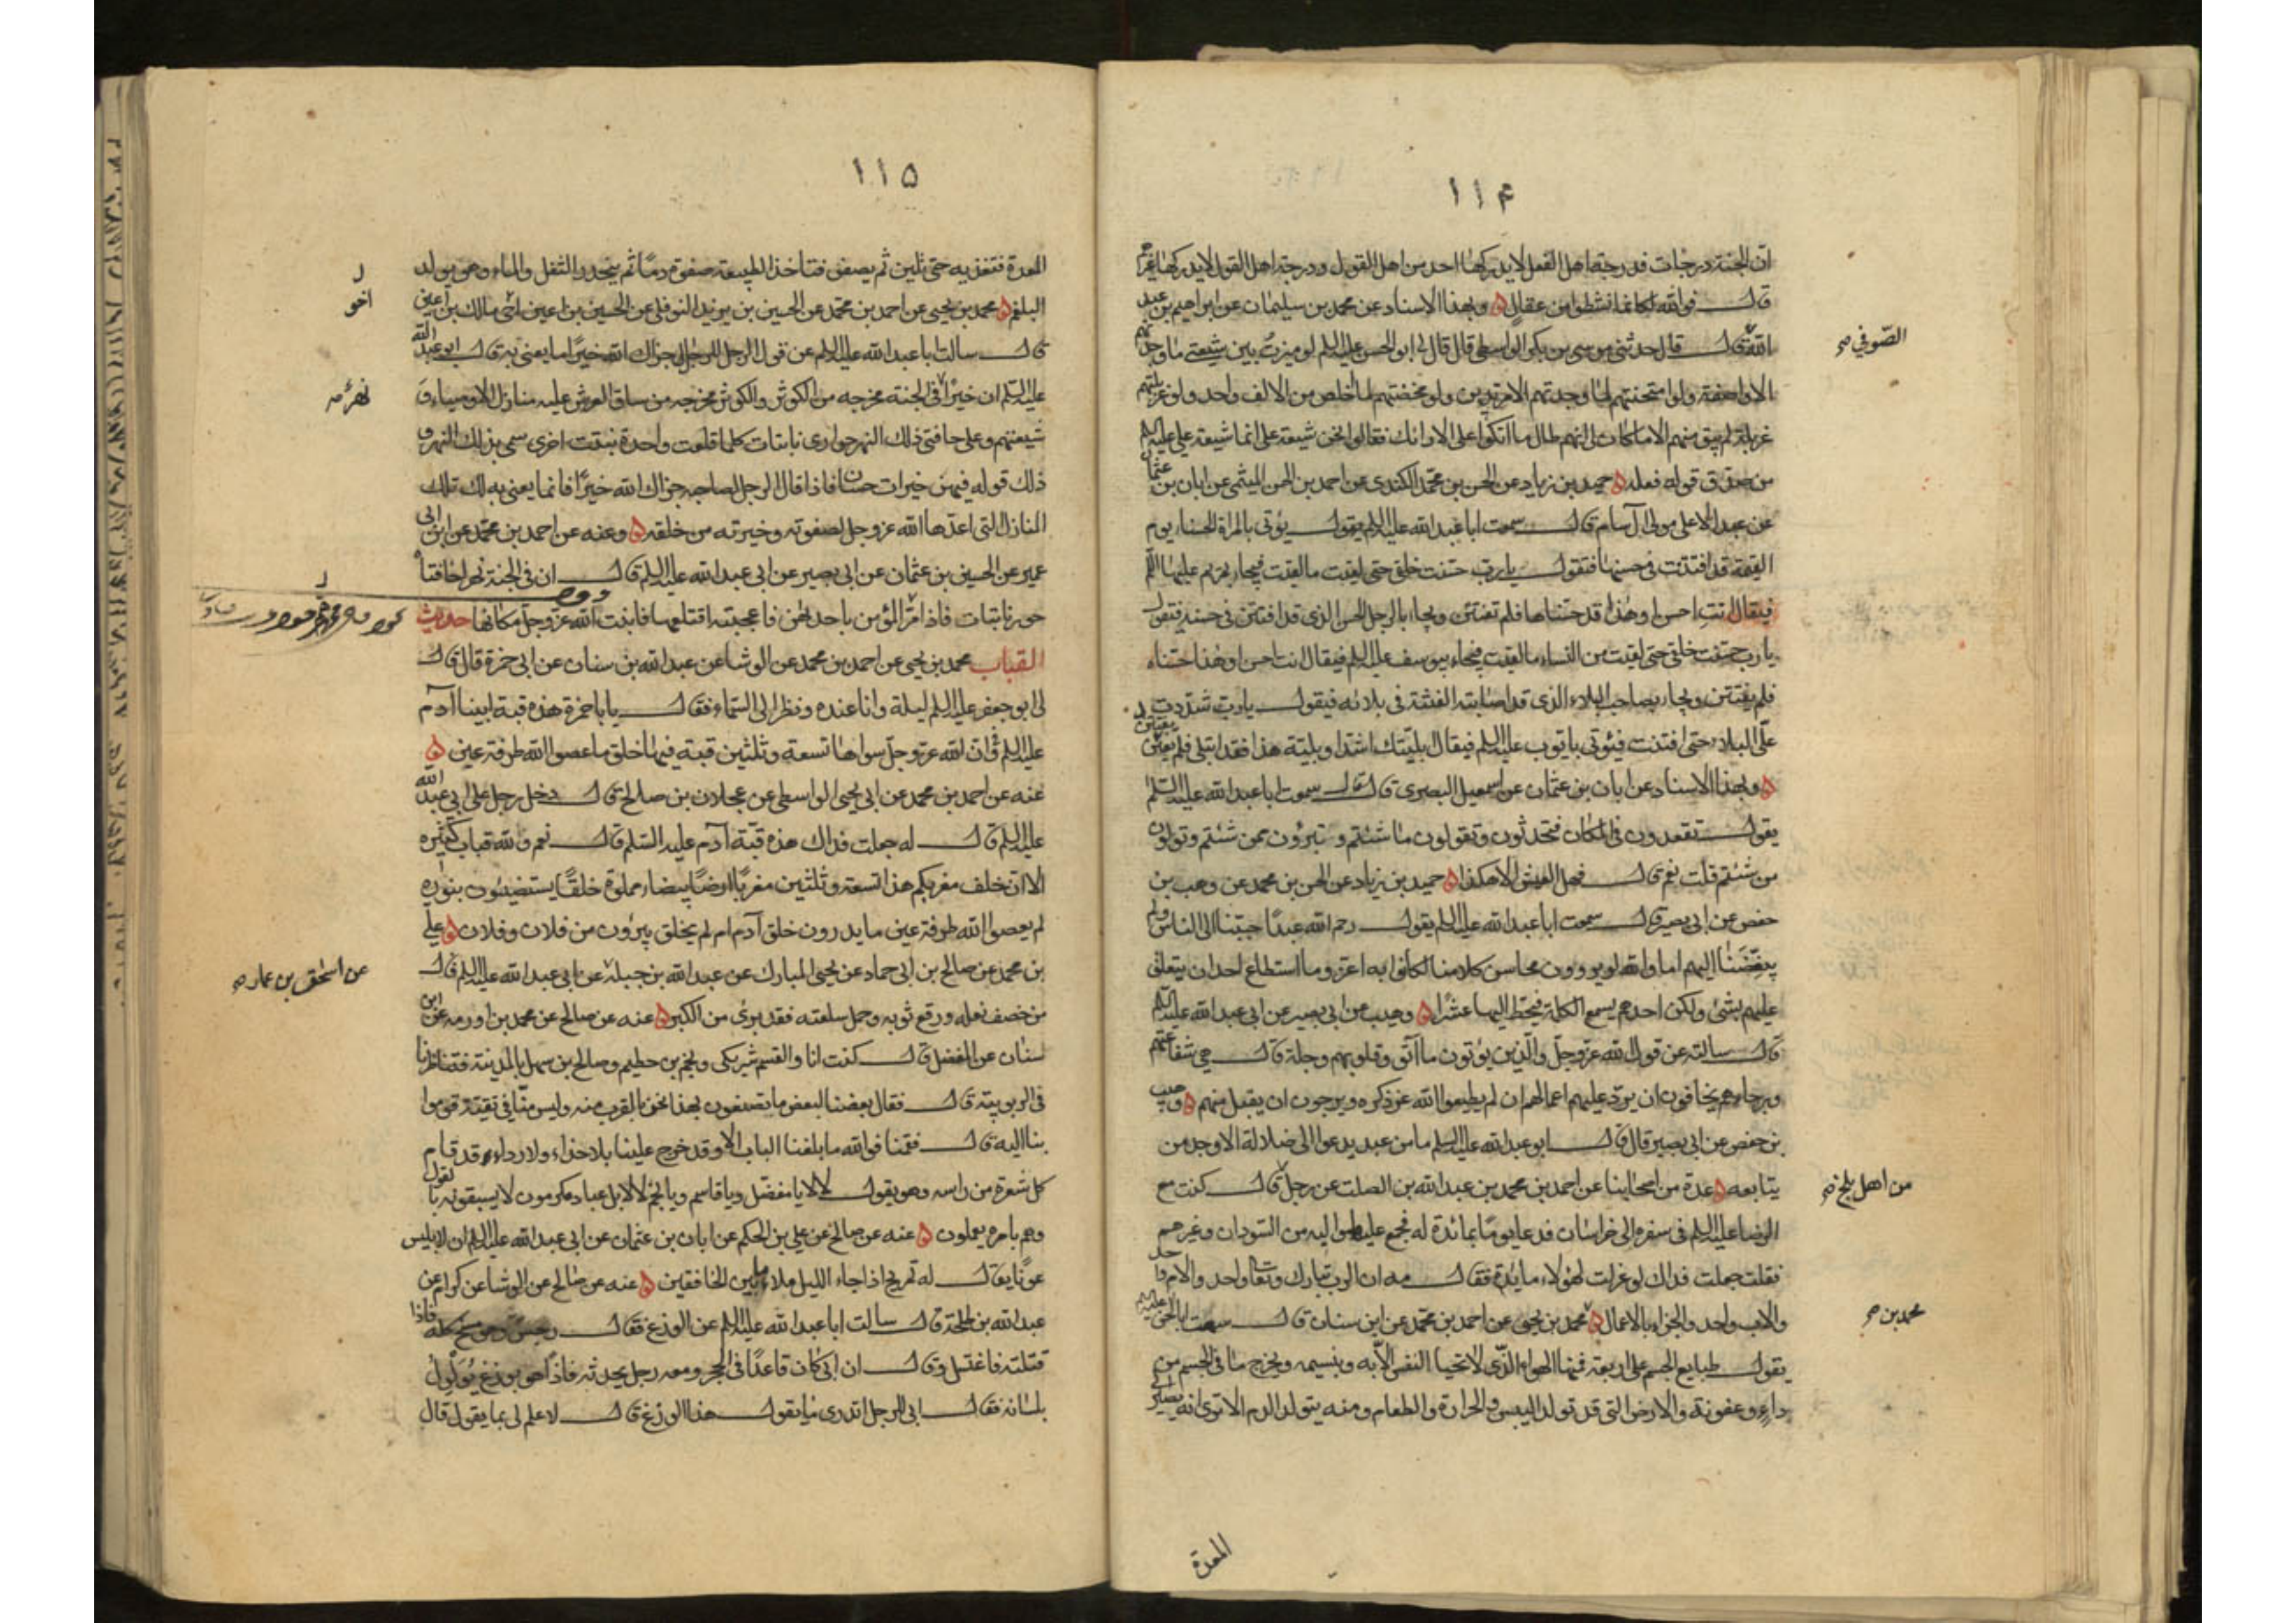 ١١۴
ان الجنة درجات فدرجة اهل الفعل لا يدركها احد من اهل القول ودرجة اهل القول لا يدركها غيرهم
قال فوالله لكانما نشطوا من عقال ۵ وبهذا الاسناد عن محمد بن سليمان عن ابراهيم بن عبد
الله قال قال حدثنى موسى بن بكر الواسطى قال قال لى ابو الحسن عليه السلم لو ميزت بين شيعتى ما وجدتهم
الصوفي صح
الا واصفة ولو امتحنتهم لما وجدتهم الا مرتدين ولو محضتهم لما خلص من الالف واحد ولو غربلتهم
غربلة لم يبق منهم الا ما كان لى انهم طال ما اتكوا على الارائك فقالوا نحن شيعة على انما شيعة على عليه السلم
من صدق قوله فعله ۵ حميد بن زياد عن الحسن بن محمد الكندى عن احمد بن الحسن الميثمى عن ابان بن عثمان
عن عبد الاعلى مولى آل سام قال سمعت ابا عبد الله عليه السلم يقول يؤتى بالمراة الحسناء يوم
القيمة قد افتتنت فى حسنها فتقول يا رب حسنت خلقى حتى لقيت ما لقيت فيجاء بمريم عليها السلم
فيقال انت احسن او هذه قد حسناها فلم تفتتن ويجاء بالرجل الحسن الذى قد افتتن فى حسنه فيقول
يا رب حسنت خلقى حتى لقيت من النساء ما لقيت فيجاء بيوسف عليه السلم فيقال انت احسن او هذا حسناه
فلم يفتتن ويجاء بصاحب البلاء الذى قد اصابته الفتنة فى بلائه فيقول يا رب شددت
على البلاء حتى افتتنت فيؤتى بايوب عليه السلم فيقال بليتك اشد او بلية هذا فقد ابتلى فلم يفتتن
۵ وبهذا الاسناد عن ابان بن عثمان عن اسمعيل البصرى قال سمعت ابا عبد الله عليه السلم
يقول تقعدون فى المكان فتحدثون وتقولون ما شئتم وتتبرؤن ممن شئتم وتولون
من شئتم قلت نعم قال فهل العيش الا هكذا ۵ حميد بن زياد عن الحسن بن محمد عن وهيب بن
حفص عن ابى بصير قال سمعت ابا عبد الله عليه السلم يقول رحم الله عبدا حببنا الى الناس ولم
يبغضنا اليهم اما والله لو يروون محاسن كلامنا لكانوا به اعز وما استطاع احد ان يتعلق
عليهم بشئ ولكن احدهم يسمع الكلمة فيحط اليها عشرا ۵ وهيب عن ابى بصير عن ابى عبد الله عليه السلم
قال سالته عن قول الله عز وجل والذين يؤتون ما اتوا وقلوبهم وجلة قال هى شفاعتهم
ورجاؤهم يخافون ان يرد عليهم اعمالهم ان لم يطيعوا الله عز ذكره ويرجون ان يقبل منهم ۵ وهيب
بن حفص عن ابى بصير قال قال ابو عبد الله عليه السلم ما من عبد يدعوا الى ضلالة الا وجد من
يتابعه ۵ عدة من اصحابنا عن احمد بن محمد بن عبد الله بن الصلت عن رجل قال كنت مع
من اهل بلخ صح
الرضا عليه السلم فى سفره الى خراسان فدعا يوما بمائدة له فجمع عليها مواليه من السودان وغيرهم
فقلت جعلت فداك لو عزلت لهؤلاء مائدة فقال مه ان الرب تبارك وتعالى واحد والام واحدة
والاب واحد والجزاء بالاعمال ۵ محمد بن يحيى عن احمد بن محمد عن ابن سنان قال سمعت ابا الحسن عليه السلم
محمد بن صح
يقول طبايع الجسم على اربعة فمنها الهواء الذى لا تحيا النفس الا به وبنسيمه ويخرج ما فى الجسم من
داء وعفونة والارض التى قد تولد اليبس والحرارة والطعام ومنه يتولد الدم الا ترى انه يصير الى
المعدة
١١۵
المعدة فتغذيه حتى يلين ثم يصفو فتاخذ الطبيعة صفوه دما ثم ينحدر الثفل والماء وهو يولد
البلغم ۵ محمد بن يحيى عن احمد بن محمد عن الحسين بن يزيد النوفلى عن الحسين بن اعين اخى مالك بن اعين
اخو
قال سالت ابا عبد الله عليه السلم عن قول الرجل للرجل جزاك الله خيرا ما يعنى به قال ابو عبد الله
عليه السلم ان خيرا فى الجنة مخرجه من الكوثر والكوثر مخرجه من ساق العرش عليه منازل الاوصياء و
نهر صح
شيعتهم وعلى حافتى ذلك النهر جوارى نابتات كلما قلعت واحدة نبتت اخرى سمى بذلك النهر و
ذلك قوله فيهن خيرات حسان فاذا قال الرجل لصاحبه جزاك الله خيرا فانما يعنى به تلك
المنازل التى اعدها الله عز وجل لصفوته وخيرته من خلقه ۵ وعنه عن احمد بن محمد عن ابن ابى
عمير عن الحسين بن عثمان عن ابى بصير عن ابى عبد الله عليه السلم قال ان فى الجنة نهرا حافتاه
حور نابتات فاذا مر المؤمن باحديهن فاعجبته اقتلعها فانبت الله عز وجل مكانها حديث
القباب محمد بن يحيى عن احمد بن محمد عن الوشا عن عبد الله بن سنان عن ابى حمزة قال قال
لى ابو جعفر عليه السلم ليلة وانا عنده ونظر الى السماء فقال يا با حمزة هذه قبة ابينا آدم
عليه السلم وان لله عز وجل سواها تسعة وثلثين قبة فيها خلق ما عصوا الله طرفة عين ۵
عنه عن احمد بن محمد عن ابى يحيى الواسطى عن عجلان بن صالح قال دخل رجل على ابى عبد الله
عليه السلم قال له جعلت فداك هذه قبة آدم عليه السلم قال نعم ولله قباب كثيرة
الا ان خلف مغربكم هذا تسعة وثلثين مغربا ارضا بيضاء مملوة خلقا يستضيئون بنوره
لم يعصوا الله طرفة عين ما يدرون خلق آدم ام لم يخلق يبرؤن من فلان وفلان ۵ على
بن محمد عن صالح بن ابى حماد عن يحيى المبارك عن عبد الله بن جبلة عن ابى عبد الله عليه السلم قال
عن اسحق بن عمار صح
من خصف نعله ورقع ثوبه وحمل سلعته فقد برئ من الكبر ۵ عنه عن صالح عن محمد بن اورمه عن ابن
سنان عن المفضل قال كنت انا والقسم شريكى ونجم بن حطيم وصالح بن سهل بالمدينة فتناظرنا
فى الربوبية قال فقال بعضنا لبعض ما تصنعون بهذا نحن بالقرب منه وليس منا فى تقية قوموا
بنا اليه قال فقمنا فوالله ما بلغنا الباب الا وقد خرج علينا بلا حذاء ولا رداء قد قام
كل شعرة من راسه وهو يقول لا لا يا مفضل ويا قاسم ويا نجم لا لا بل عباد مكرمون لا يسبقونه بالقول
وهم بامره يعملون ۵ عنه عن صالح عن على بن الحكم عن ابان بن عثمان عن ابى عبد الله عليه السلم ان لابليس
عونا يقال له تمريح اذا جاء الليل ملاء ما بين الخافقين ۵ عنه عن صالح عن الوشا عن كرام عن
عبد الله بن طلحة قال سالت ابا عبد الله عليه السلم عن الوزغ فقال رجس وهو مسخ كله فاذا
قتلته فاغتسل وقال ان ابى كان قاعدا فى الحجر ومعه رجل يحدثه فاذا هو بوزغ يولول
بلسانه فقال ابى للرجل اتدرى ما يقول هذا الوزغ قال لا علم لى بما يقول قال